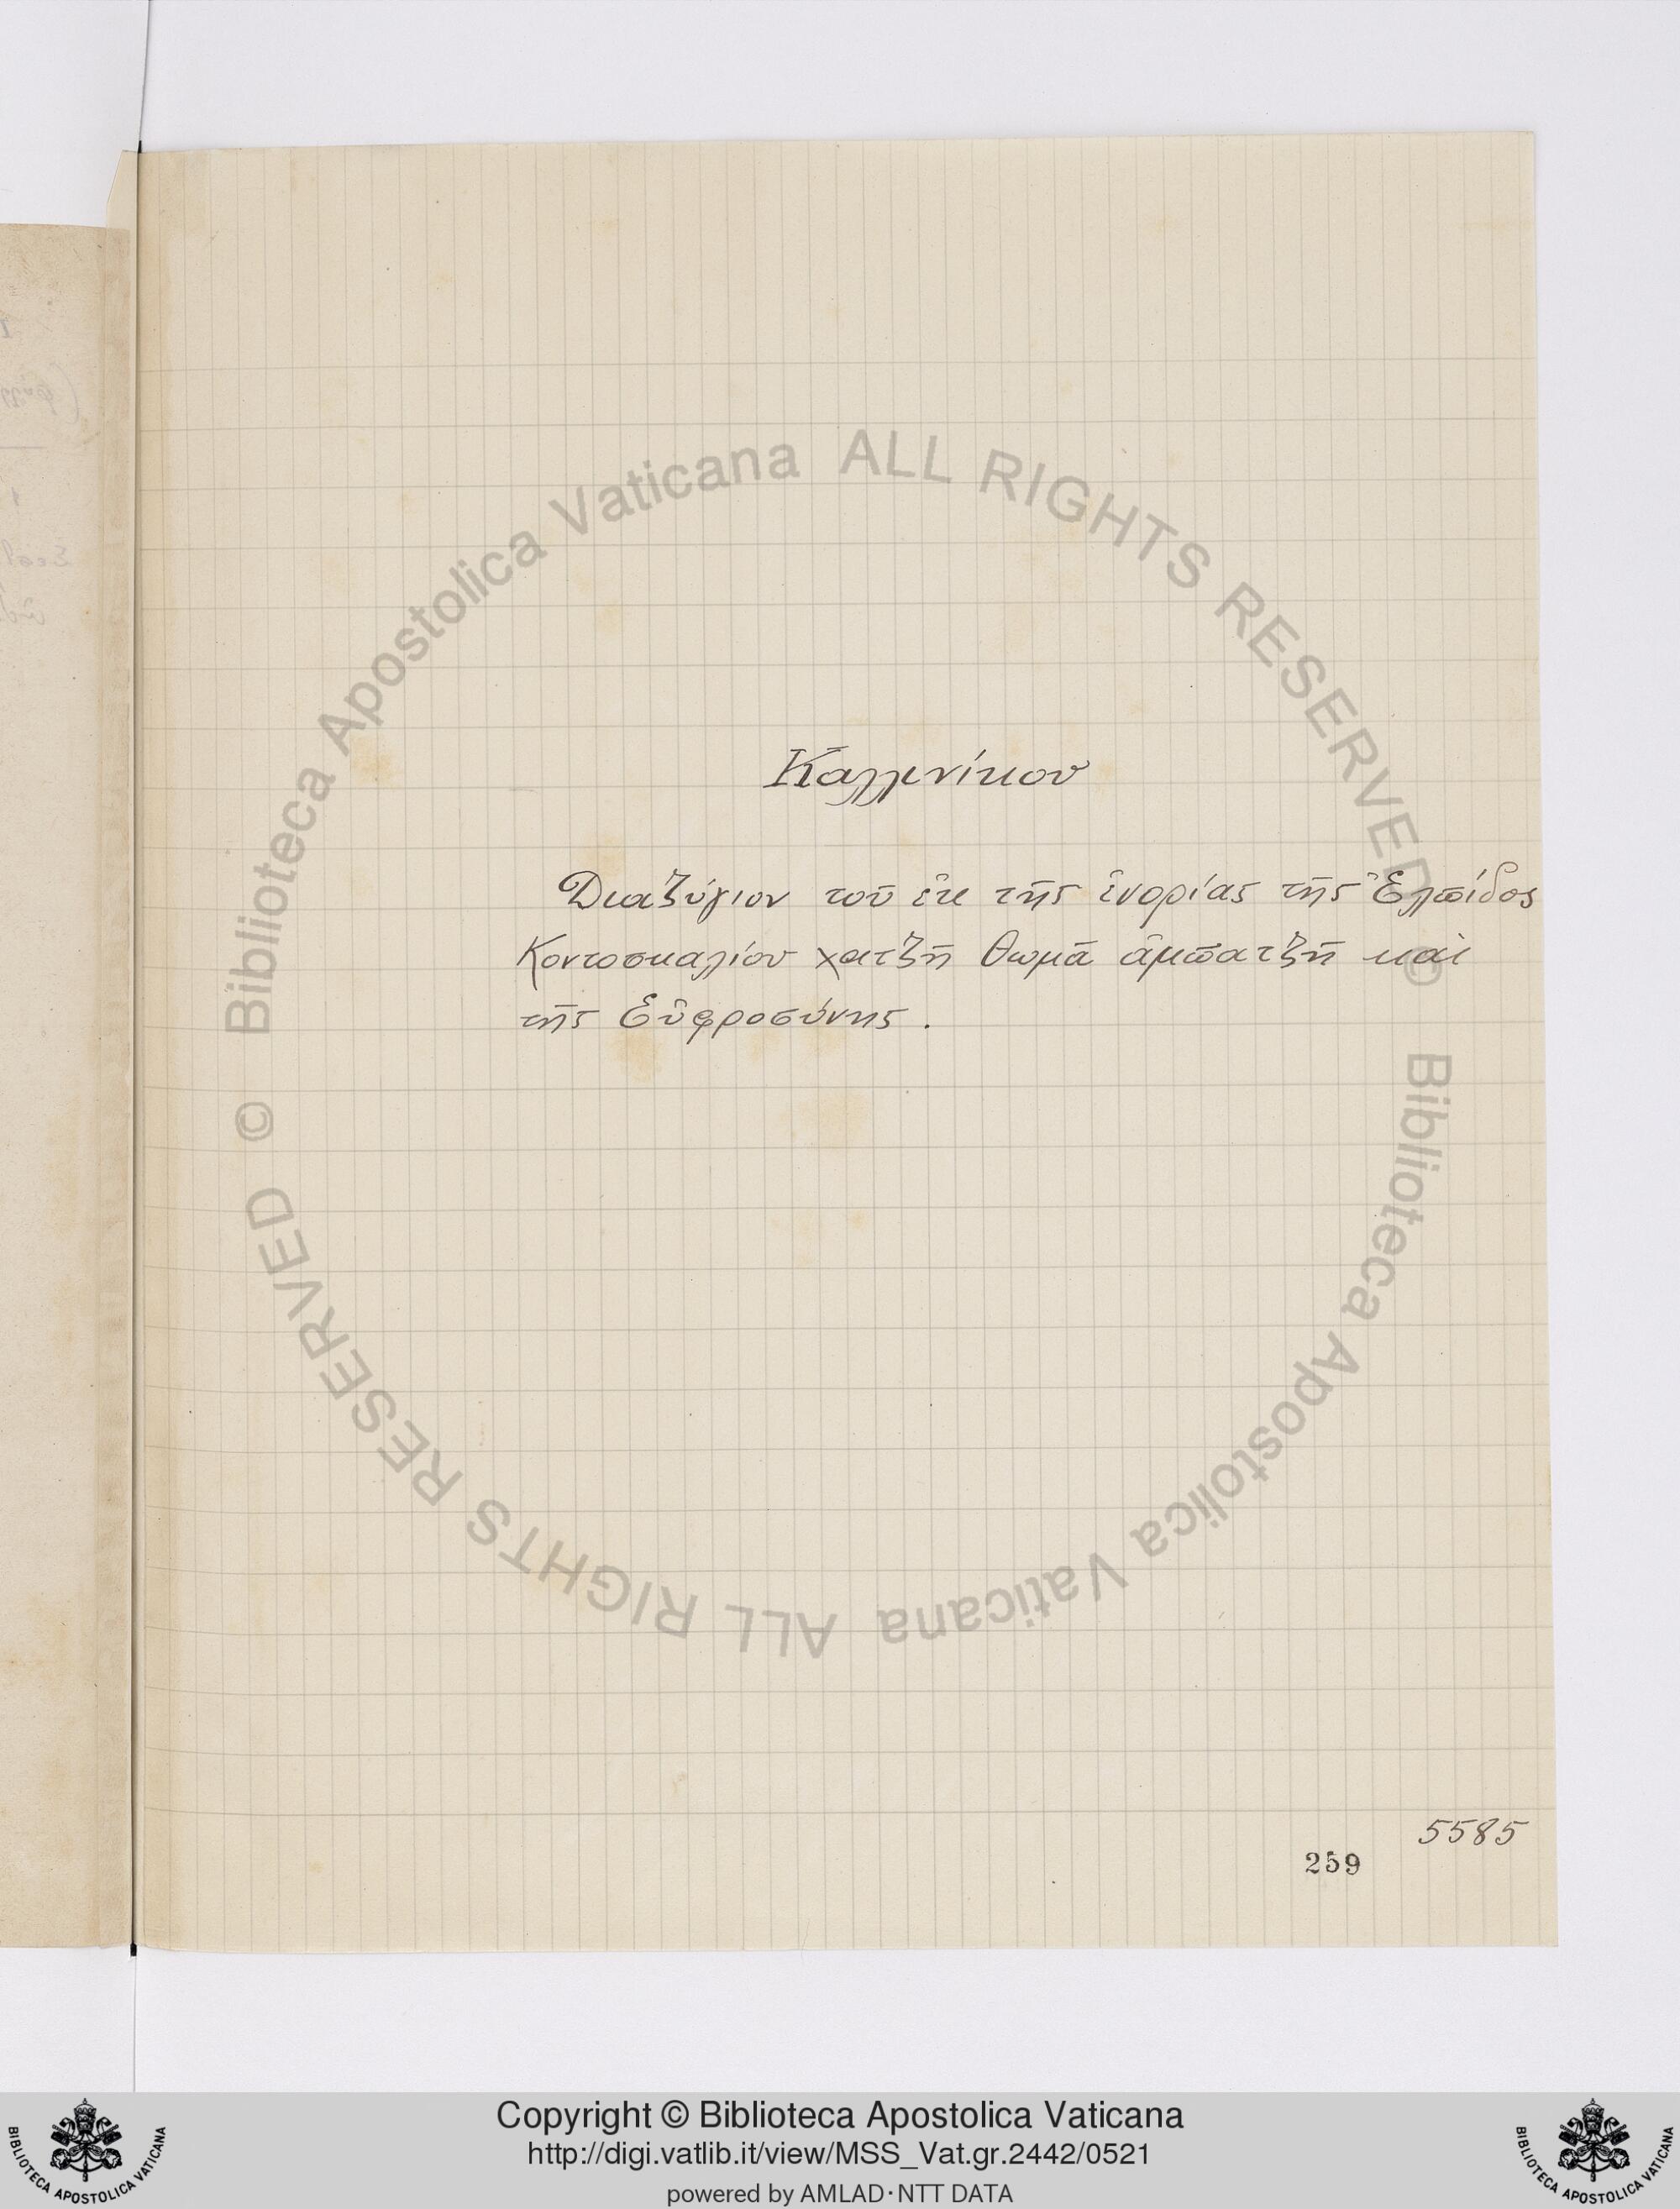 Καλλινίκου
Διαζύγιον τοῦ ἐκ τῆς ἐνορίας τῆς Ἐλπίδος
Κοντοσκαλίου χατζῆ Θωμᾶ ἀμπατζῆ καὶ
τῆς Εὐφροσύνης.
5585
259
© Biblioteca Apostolica Vaticana ALL RIGHTS RESERVED
© Biblioteca Apostolica Vaticana ALL RIGHTS RESERVED
Copyright © Biblioteca Apostolica Vaticana
http://digi.vatlib.it/view/MSS_Vat.gr.2442/0521
powered by AMLAD·NTT DATA
BIBLIOTECA APOSTOLICA VATICANA
BIBLIOTECA APOSTOLICA VATICANA